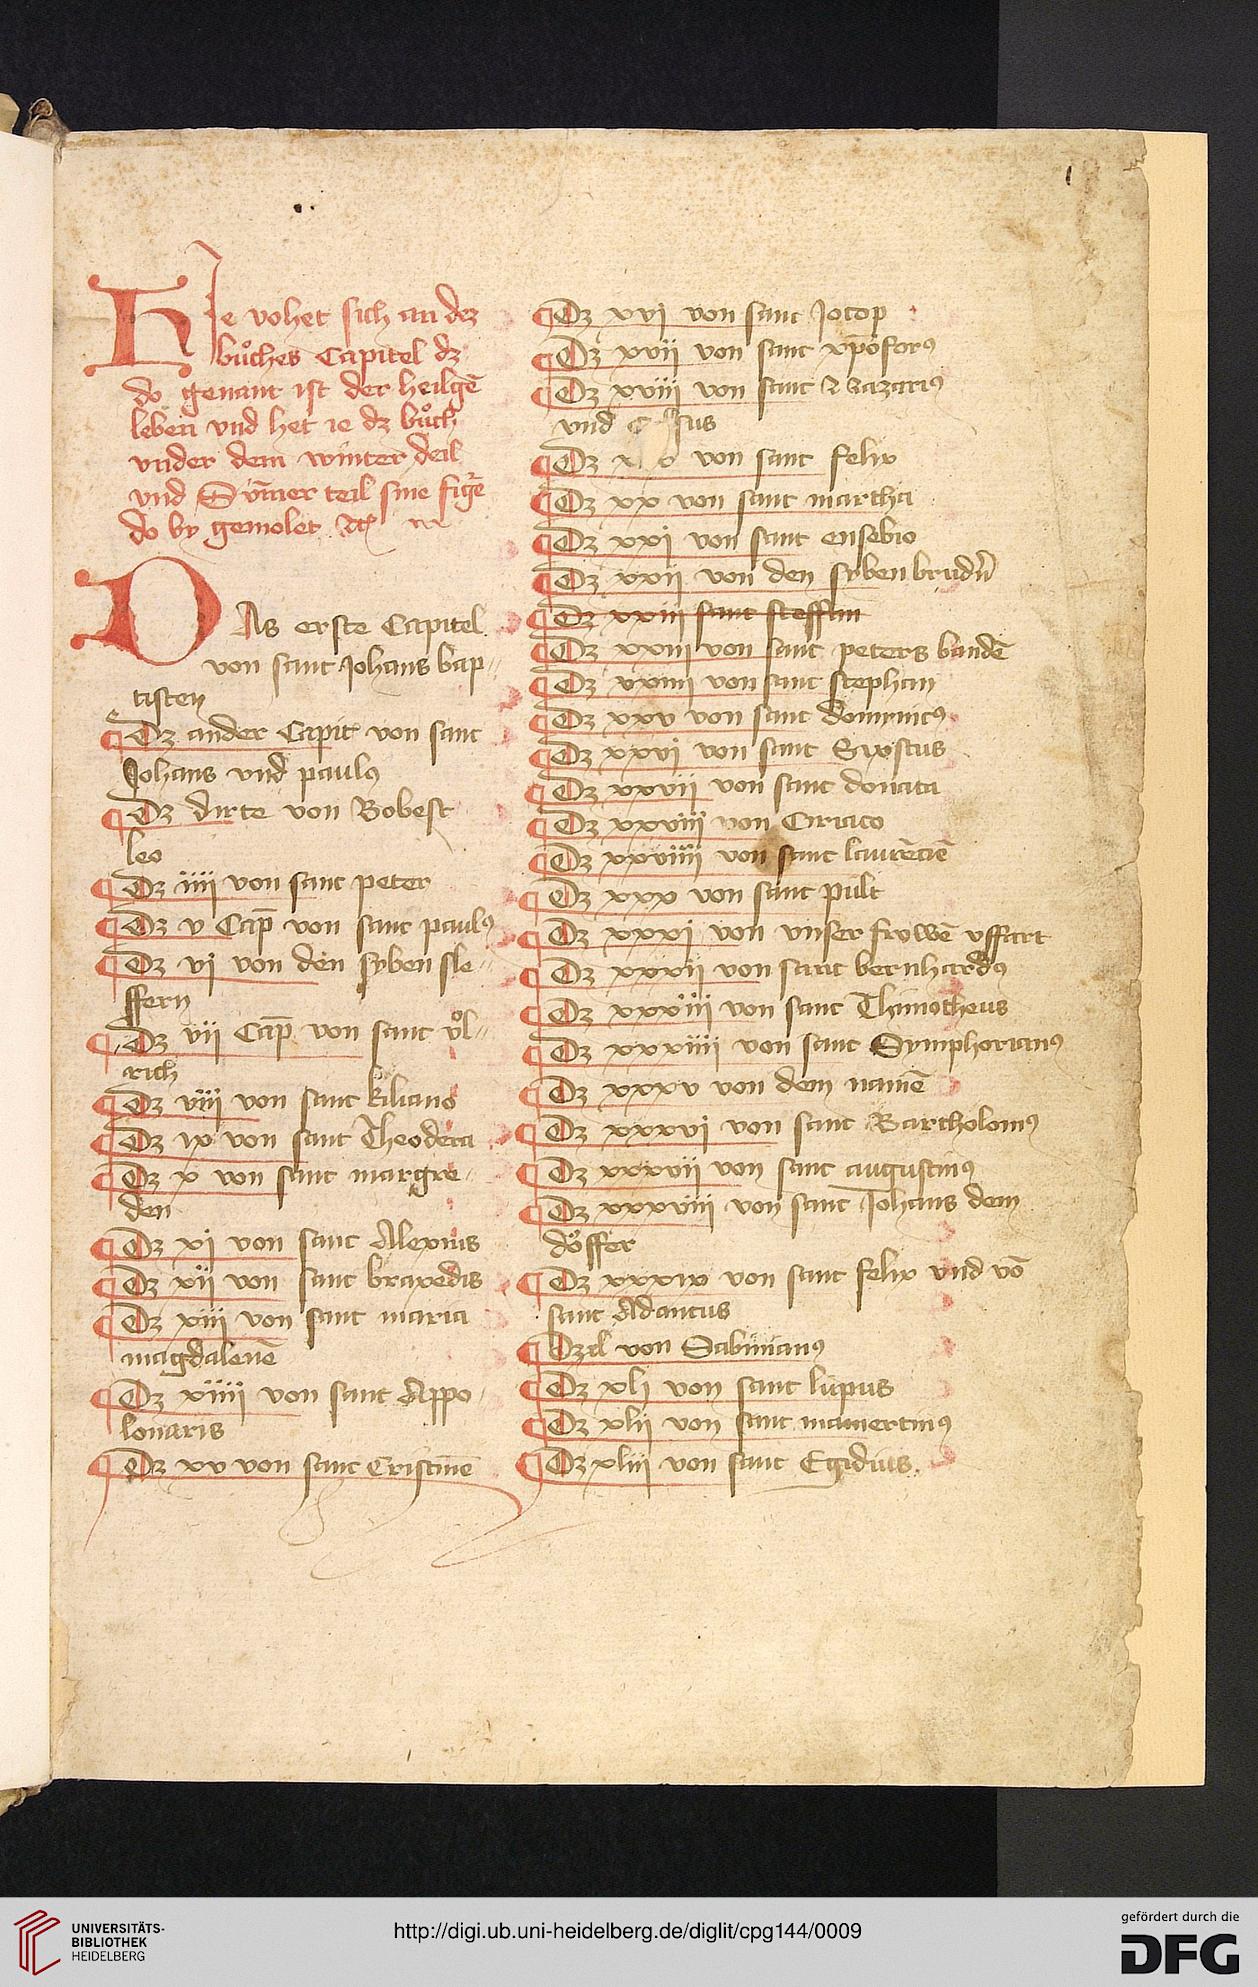 1
HIe vohet sich an dez
buͦches Capitel dz
do genant ist der heilgē
leben vnd het ie dz buͦch
vnder dem winter deil
vnd Sūmer teil sine figr̄
do by gemolet
DAs erste Capitel
von sant Johans bap-
tisten
¶ Dz ander Capit von sant
Johans vnd paulꝰ
¶ Dz dirte von Bobest
leo
¶ Dz iiii von sant peter
¶ Dz v Cap̄ von sant paulꝰ
¶ Dz vi von den syben sle-
ffern
¶ Dz vii Cap̄ von sant vͦl-
rich
¶ Dz viii von sant kiliano
¶ Dz ix von sant Theodera
¶ Dz x von sant margre-
den
¶ Dz xi von sant Alexius
¶ Dz xii von sant braxedis
¶ Dz xiii von sant maria
magdalenē
¶ Dz xiiii von sant Appo-
lonaris
¶ Dz xv von sant Cristinē
¶ Dz xvi von sant Jocop
¶ Dz xvii von sant xp̄oforꝰ
¶ Dz xviii von sant Nazariꝰ
vnd
¶ Dz von sant felix
¶ Dz xx von sant martha
¶ Dz xxi von sant eusebio
¶ Dz xxii von den syben brudn̄
¶ Dz xxiii sant steffan
¶ Dz xxiii von sant peters bandē
¶ Dz xxiiii von sant stephan
¶ Dz xxv von sant dominicꝰ
¶ Dz xxvi von sant Sixstus
¶ Dz xxvii von sant donata
¶ Dz xxviii von Ciriaco
¶ Dz xxviiii von sant laurēciē
¶ Dz xxx von sant pült
¶ Dz xxxi von vnser frowē vffart
¶ Dz xxxii von sant bernhardꝰ
¶ Dz xxxiii von sant Thimotheus
¶ Dz xxxiiii von sant Symphorianꝰ
¶ Dz xxxv von dem namē
¶ Dz xxxvi von sant Bartholomꝰ
¶ Dz xxxvii von sant augustinꝰ
¶ Dz xxxviii von sant Johans dem
doͤffer
¶ Dz xxxix von sant felix vnd vō
sant Adauctus
¶ Dz xl von Sabinianꝰ
¶ Dz xli von sant lupus
¶ Dz xlii von sant mamertinꝰ
¶ Dz xliii von sant Egidius.
UNIVERSITÄTS-
BIBLIOTHEK
HEIDELBERG
http://digi.ub.uni-heidelberg.de/diglit/cpg144/0009
gefördert durch die
DFG